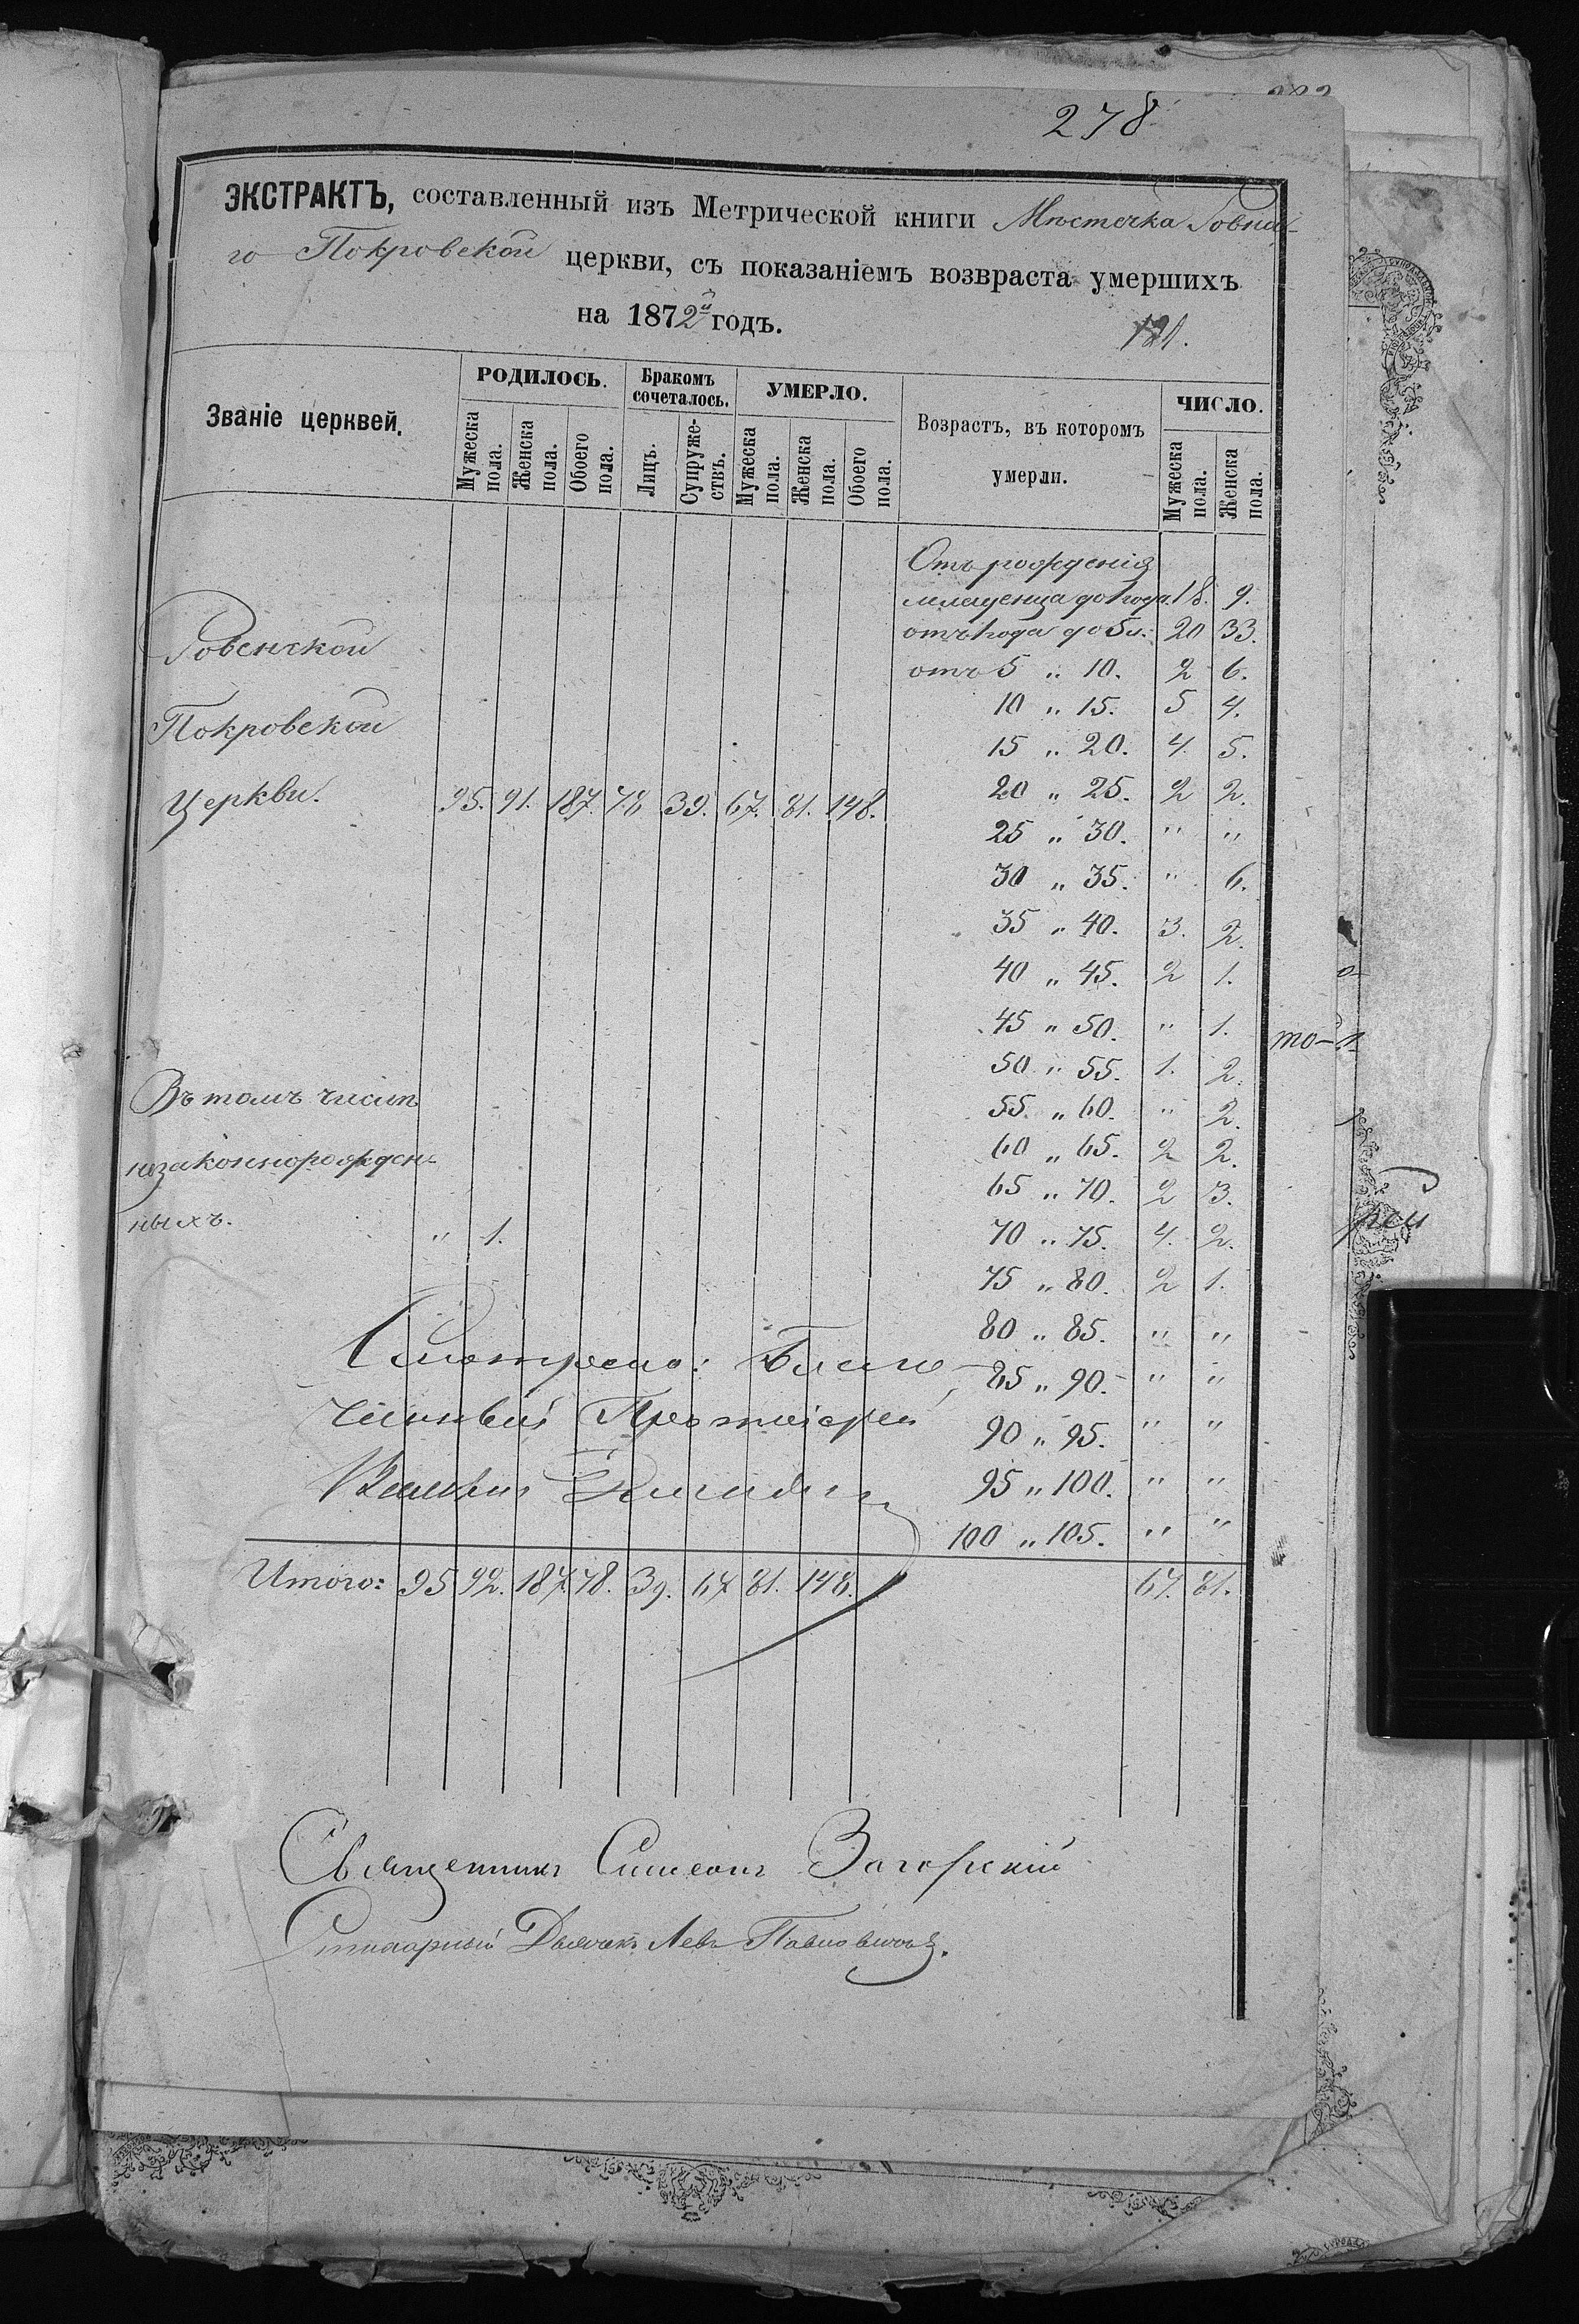 278
ЭКСТРАКТЪ, составленный изъ Метрической книги Мѣстечка Ровна-
го Покровской церкви, съ показаніемъ возвраста умершихъ
на 1872й годъ.
121.
Званіе церквей. РОДИЛОСЬ. Бракомъ сочеталось. УМЕРЛО. Возрастъ, въ которомъ умерли. ЧИСЛО.
Мужеска пола. Женска пола. Обоего пола. Лицъ. Супруже-ствъ. Мужеска пола. Женска пола. Обоего пола. Мужеска пола. Женска пола.
Отъ рожденія
младенца до 1 года. 18. 9.
Ровенской
отъ 1 года до 5 л: 20 33.
отъ 5 „ 10. 2 6.
Покровской
10 „ 15. 5 4.
15 „ 20. 4. 5.
Церкви. 95. 91. 187. 78 39. 67. 81. 148.
20 „ 25. 2 2.
25 „ 30. „ „
30 „ 35. „ 6.
35 „ 40. 3. 2.
40 „ 45. 2 1.
45 „ 50. „ 1.
50 „ 55. 1. 2.
Въ томъ числѣ
55 „ 60. „ 2.
незаконнорожден-
60 „ 65. 2 2.
65 „ 70. 2 3.
ныхъ. „ 1.
70 „ 75. 4. 2.
75 „ 80. 2 1.
80 „ 85. „ „
Смотрелъ: Благо-
85 „ 90. „ „
чинный Протоіерей
90 „ 95. „ „
95 „ 100. „ „
100 „ 105. „ „
Итого: 95 92. 187. 78. 39. 67 81. 148. 67. 81.
Священникъ Симеонъ Загорскій
Дьячекъ Левъ Павловичъ.
то-
рей